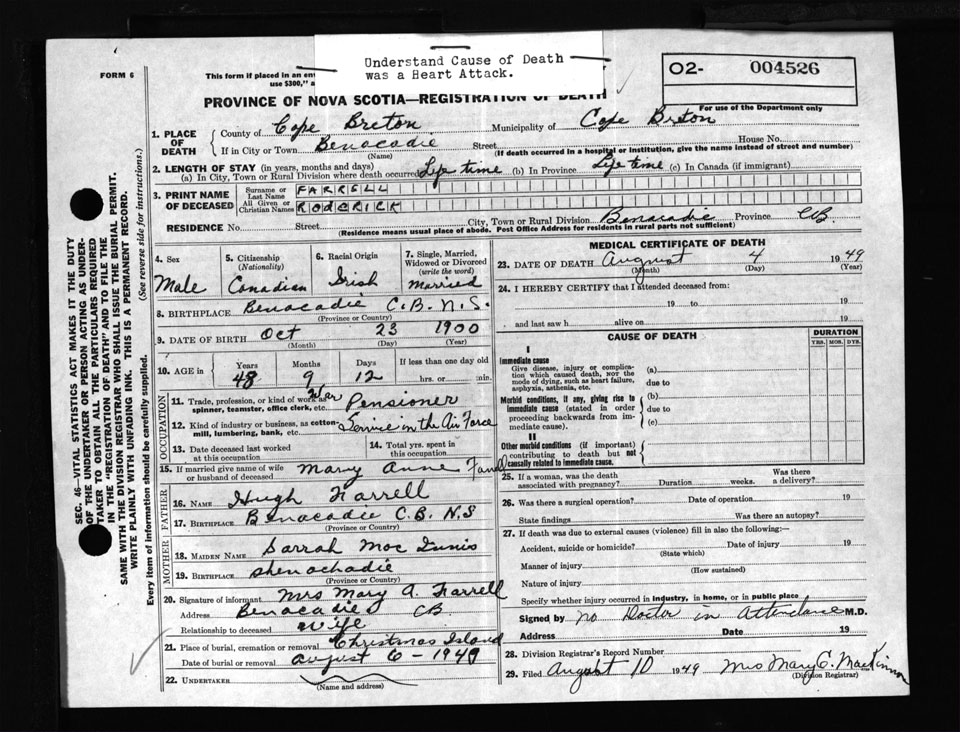 Understand Cause of Death
was a Heart Attack.
O2- 004526
For use of the Department only
FORM 6
This form if placed in an en
use $300," a
PROVINCE OF NOVA SCOTIA—REGISTRATION OF DEATH
1. PLACE OF DEATH
County of Cape Breton Municipality of Cape Breton
If in City or Town Benacadie Street House No.
(Name) (If death occurred in a hospital or institution, give the name instead of street and number)
2. LENGTH OF STAY (in years, months and days)
(a) In City, Town or Rural Division where death occurred Life time (b) In Province Life time (c) In Canada (if immigrant)
3. PRINT NAME OF DECEASED
Surname or Last Name FARRELL
All Given or Christian Names RODERICK
RESIDENCE No. Street City, Town or Rural Division Benacadie Province CB.
(Residence means usual place of abode. Post Office Address for residents in rural parts not sufficient)
4. Sex Male
5. Citizenship (Nationality) Canadian
6. Racial Origin Irish
7. Single, Married, Widowed or Divorced (write the word) Married
8. BIRTHPLACE Benacadie C.B. N.S.
(Province or Country)
9. DATE OF BIRTH Oct 23 1900
(Month) (Day) (Year)
10. AGE in Years Months Days If less than one day old
48 9 12 hrs. or min.
OCCUPATION
11. Trade, profession, or kind of work as spinner, teamster, office clerk, etc. War Pensioner
12. Kind of industry or business, as cotton-mill, lumbering, bank, etc. Service in the Air Force
13. Date deceased last worked at this occupation
14. Total yrs. spent in this occupation
15. If married give name of wife or husband of deceased Mary Anne Farrell
FATHER
16. NAME Hugh Farrell
17. BIRTHPLACE Benacadie C.B. N.S
(Province or Country)
MOTHER
18. MAIDEN NAME Sarrah Mac Innis
19. BIRTHPLACE Shenachadie
(Province or Country)
20. Signature of informant Mrs Mary A. Farrell
Address Benacadie CB
Relationship to deceased Wife
21. Place of burial, cremation or removal Christmas Island
Date of burial or removal August 6 - 1949
22. UNDERTAKER
(Name and address)
MEDICAL CERTIFICATE OF DEATH
23. DATE OF DEATH August 4 1949
(Month) (Day) (Year)
24. I HEREBY CERTIFY that I attended deceased from:
19 to 19
and last saw h alive on 19
CAUSE OF DEATH
DURATION
YRS. MOS. DYS.
I
Immediate cause
Give disease, injury or complication which caused death, NOT the mode of dying, such as heart failure, asphyxia, asthenia, etc.
(a)
due to
Morbid conditions, if any, giving rise to immediate cause (stated in order proceeding backwards from immediate cause).
(b)
due to
(c)
II
Other morbid conditions (if important) contributing to death but not causally related to immediate cause.
25. If a woman, was the death associated with pregnancy? Duration weeks. Was there a delivery?
26. Was there a surgical operation? Date of operation 19
State findings Was there an autopsy?
27. If death was due to external causes (violence) fill in also the following:—
Accident, suicide or homicide? Date of injury 19
(State which)
Manner of injury
(How sustained)
Nature of injury
Specify whether injury occurred in industry, in home, or in public place
Signed by No Doctor in Attendance M.D.
Address Date 19
28. Division Registrar's Record Number
29. Filed August 10 1949 Mrs Mary C. MacKinnon
(Division Registrar)
SEC. 46—VITAL STATISTICS ACT MAKES IT THE DUTY
OF THE UNDERTAKER OR PERSON ACTING AS UNDER-
TAKER TO OBTAIN ALL THE PARTICULARS REQUIRED
IN THE "REGISTRATION OF DEATH" AND TO FILE THE
SAME WITH THE DIVISION REGISTRAR WHO SHALL ISSUE THE BURIAL PERMIT.
WRITE PLAINLY WITH UNFADING INK. THIS IS A PERMANENT RECORD.
Every item of information should be carefully supplied. (See reverse side for instructions.)